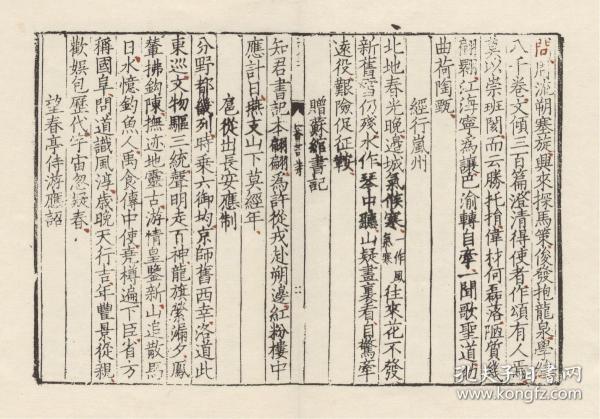 問周流朔塞旋興來探馬策俊發抱龍泉學總
八千卷文傾三百篇澄清得使者作頌有人焉
莫以崇班閡而云勝托捐偉材何磊落陋質幾
翩翾江海寧為讓巴渝轉自牽一聞歌聖道助
曲荷陶甄
經行嵐州
北地春光晚邊城氣候寒一作風氣寒往來花不發
新舊雪仍殘水作琴中聽山疑畫裏看自驚牽
遠役艱險促征鞍
贈蘇綰書記
知君書記本翩翩為許從戎赴朔邊紅粉樓中
應計日燕支山下莫經年
扈從出長安應制
分野都畿列時乘六御均京師舊西幸洛道此
東巡文物驅三統聲明走百神龍旗縈漏夕鳳
輦拂鈎陳撫迹地靈古游情皇鑒新山追散馬
日水憶釣魚人禹食傳中使堯樽遍下臣省方
稱國阜問道識風淳歲晚天行吉年豐景從親
歡娛包歷代宇宙忽疑春
望春亭侍游應詔
孔夫子旧书网